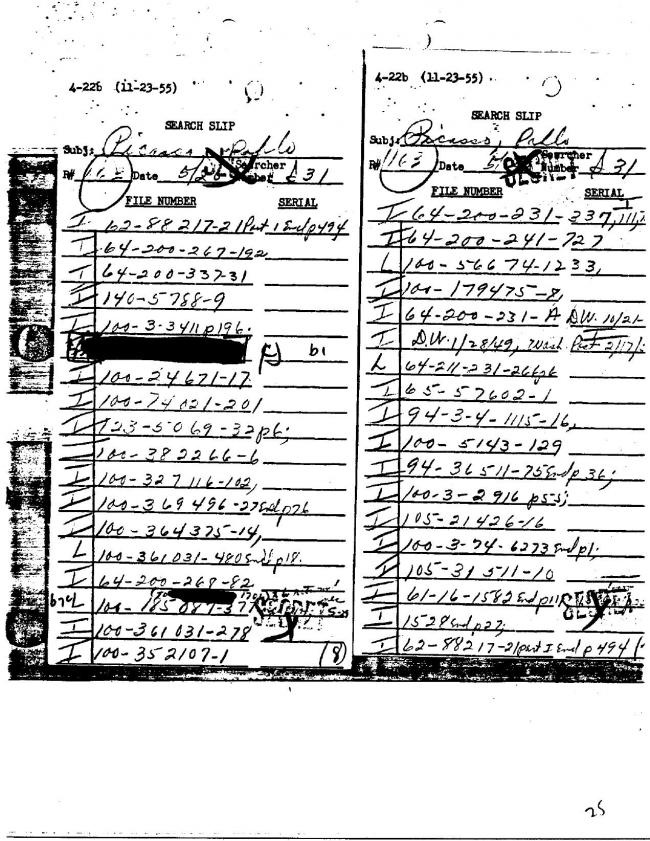 4-22b (11-23-55)
SEARCH SLIP
Subj: Picasso, Pablo
R# 163 Date 5/ Searcher Number 31
FILE NUMBER SERIAL
I 62-88217-21 Part 1 Encl p494
I 64-200-267-192
I 64-200-337-31
I 140-5788-9
I 100-3-3411 p196.
b1
I 100-24671-17
I 100-74021-201
I 123-5069-32 p6;
I 100-382266-6
I 100-327116-102,
I 100-369496-27 Encl p76
I 100-364375-14,
L 100-361031-480 Encl p18.
I 64-200-268-82
L 100-185087-377
I 100-361031-278
I 100-352107-1 (8)
4-22b (11-23-55)
SEARCH SLIP
Subj: Picasso, Pablo
R# 1163 Date 5/ Searcher Number 31
SECRET
FILE NUMBER SERIAL
I 64-200-231-337, 111,
I 64-200-241-727
L 100-56674-1233,
I 100-179475-8,
I 64-200-231-A D.W. 10/21-
I D.W. 1/28/49, Wash. Post 2/17/
L 64-211-231-26
I 65-57602-1
I 94-3-4-1115-16,
I 100-5143-129
I 94-36511-75 Encl p 36;
I 100-3-2916 p55;
I 105-21426-16
I 100-3-74-6273 Encl p1;
I 105-31511-10
I 61-16-1582 Encl p11
I 1528 Encl p27;
I 62-88217-21 part I Encl p 494
25